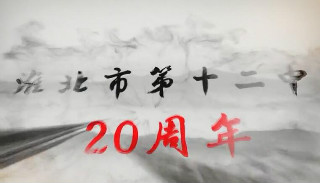 淮北市第十二中
20周年